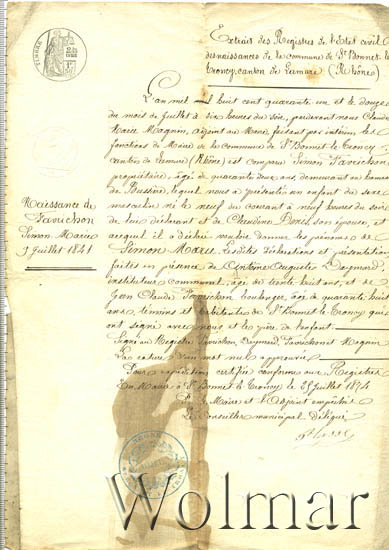 Extrait des Registres de l'Etat civil
des naissances de la commune de St Bonnet le
Troncy, canton de Lamure (Rhône)
L'an mil huit cent quarante un et le douze
du mois de Juillet à six heures du soir, pardevant nous Claude
Marie Magnin, adjoint au Maire faisant par intérim les
fonctions de Maire de la commune de St Bonnet le Troncy
Canton de Lamure (Rhône) est comparu Simon
propriétaire, âgé de quarante deux ans, demeurant au hameau
de Bussière, lequel nous a présenté un enfant du sexe
masculin né le neuf du courant à neuf heures du soir
de lui déclarant et de Claudine son épouse, et
auquel il a déclaré vouloir donner les prénoms de
Simon Marie. Lesdites déclarations et présentation
faites en présence de Auguste
instituteur communal, âgé de trente huit ans, et de
Jean Claude boulanger, âgé de quarante huit
ans, témoins et habitants de St Bonnet le Troncy qui
ont signé avec nous et le père de l'enfant.
Signé au Registre Magnin
La rature d'un mot nul approuvée
Pour expédition certifiée conforme aux Registres
En Mairie à St Bonnet le Troncy le 25 Juillet 1874
Le Maire et l'Adjoint empêchés
Le Conseiller municipal délégué
Naissance de
Simon Marie
9 Juillet 1841
TIMBRE
Wolmar